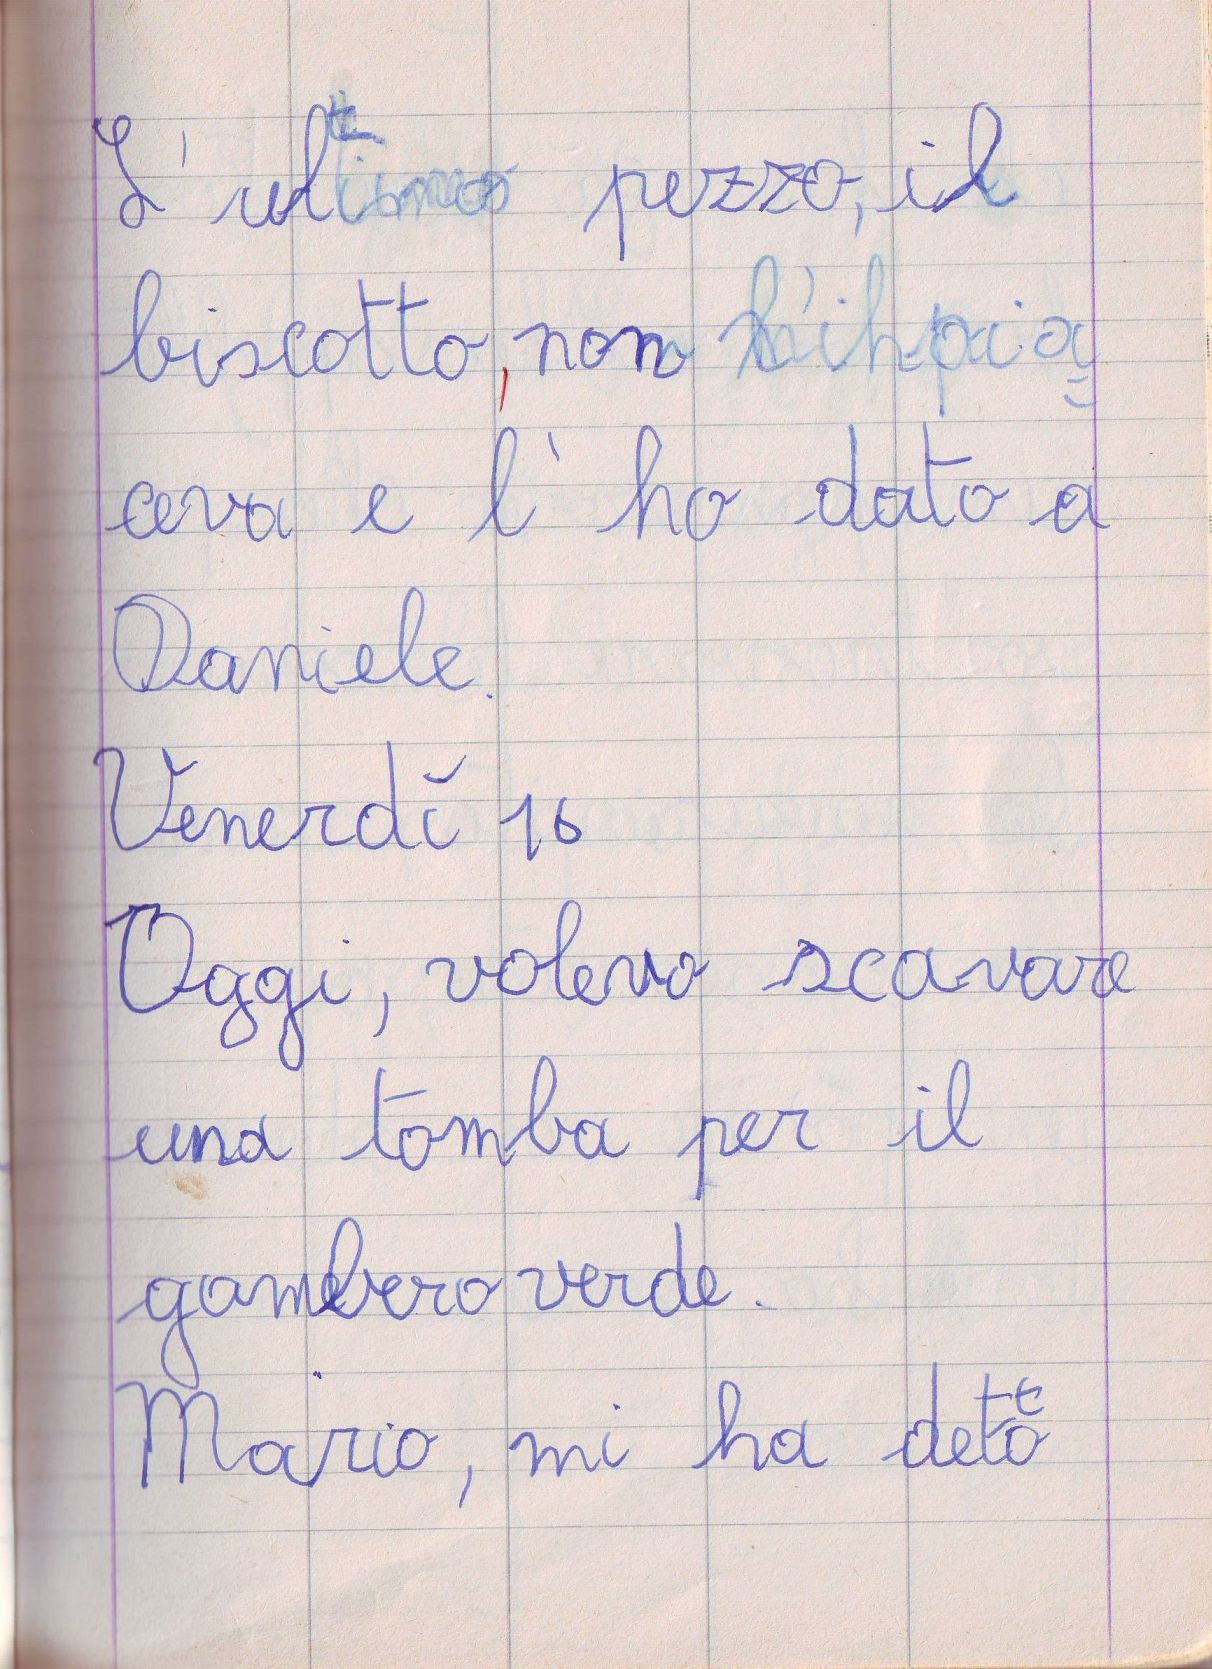 L'ultimo pezzo, il
biscotto, non pia
ceva e l'ho dato a
Daniele.
Venerdì 16
Oggi, volevo scavare
una tomba per il
gambero verde.
Mario, mi ha detto